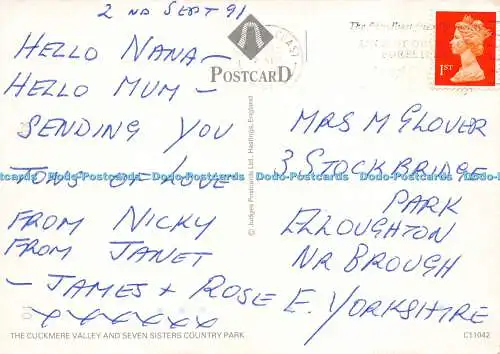 2 ND SEPT 91
HELLO NANA -
HELLO MUM -
SENDING YOU
TONS OF LOVE
FROM NICKY
FROM JANET
- JAMES + ROSE
XXXXXX
POSTCARD
1ST
© Judges Postcards Ltd. Hastings, England
MRS M GLOVER
3 STOCKBRIDGE
PARK
ELLOUGHTON
NR BROUGH
E. YORKSHIRE
Dodo-Postcards Dodo-Postcards Dodo-Postcards Dodo-Postcards Dodo-Postcards Dodo-Postcards
THE CUCKMERE VALLEY AND SEVEN SISTERS COUNTRY PARK
C11042